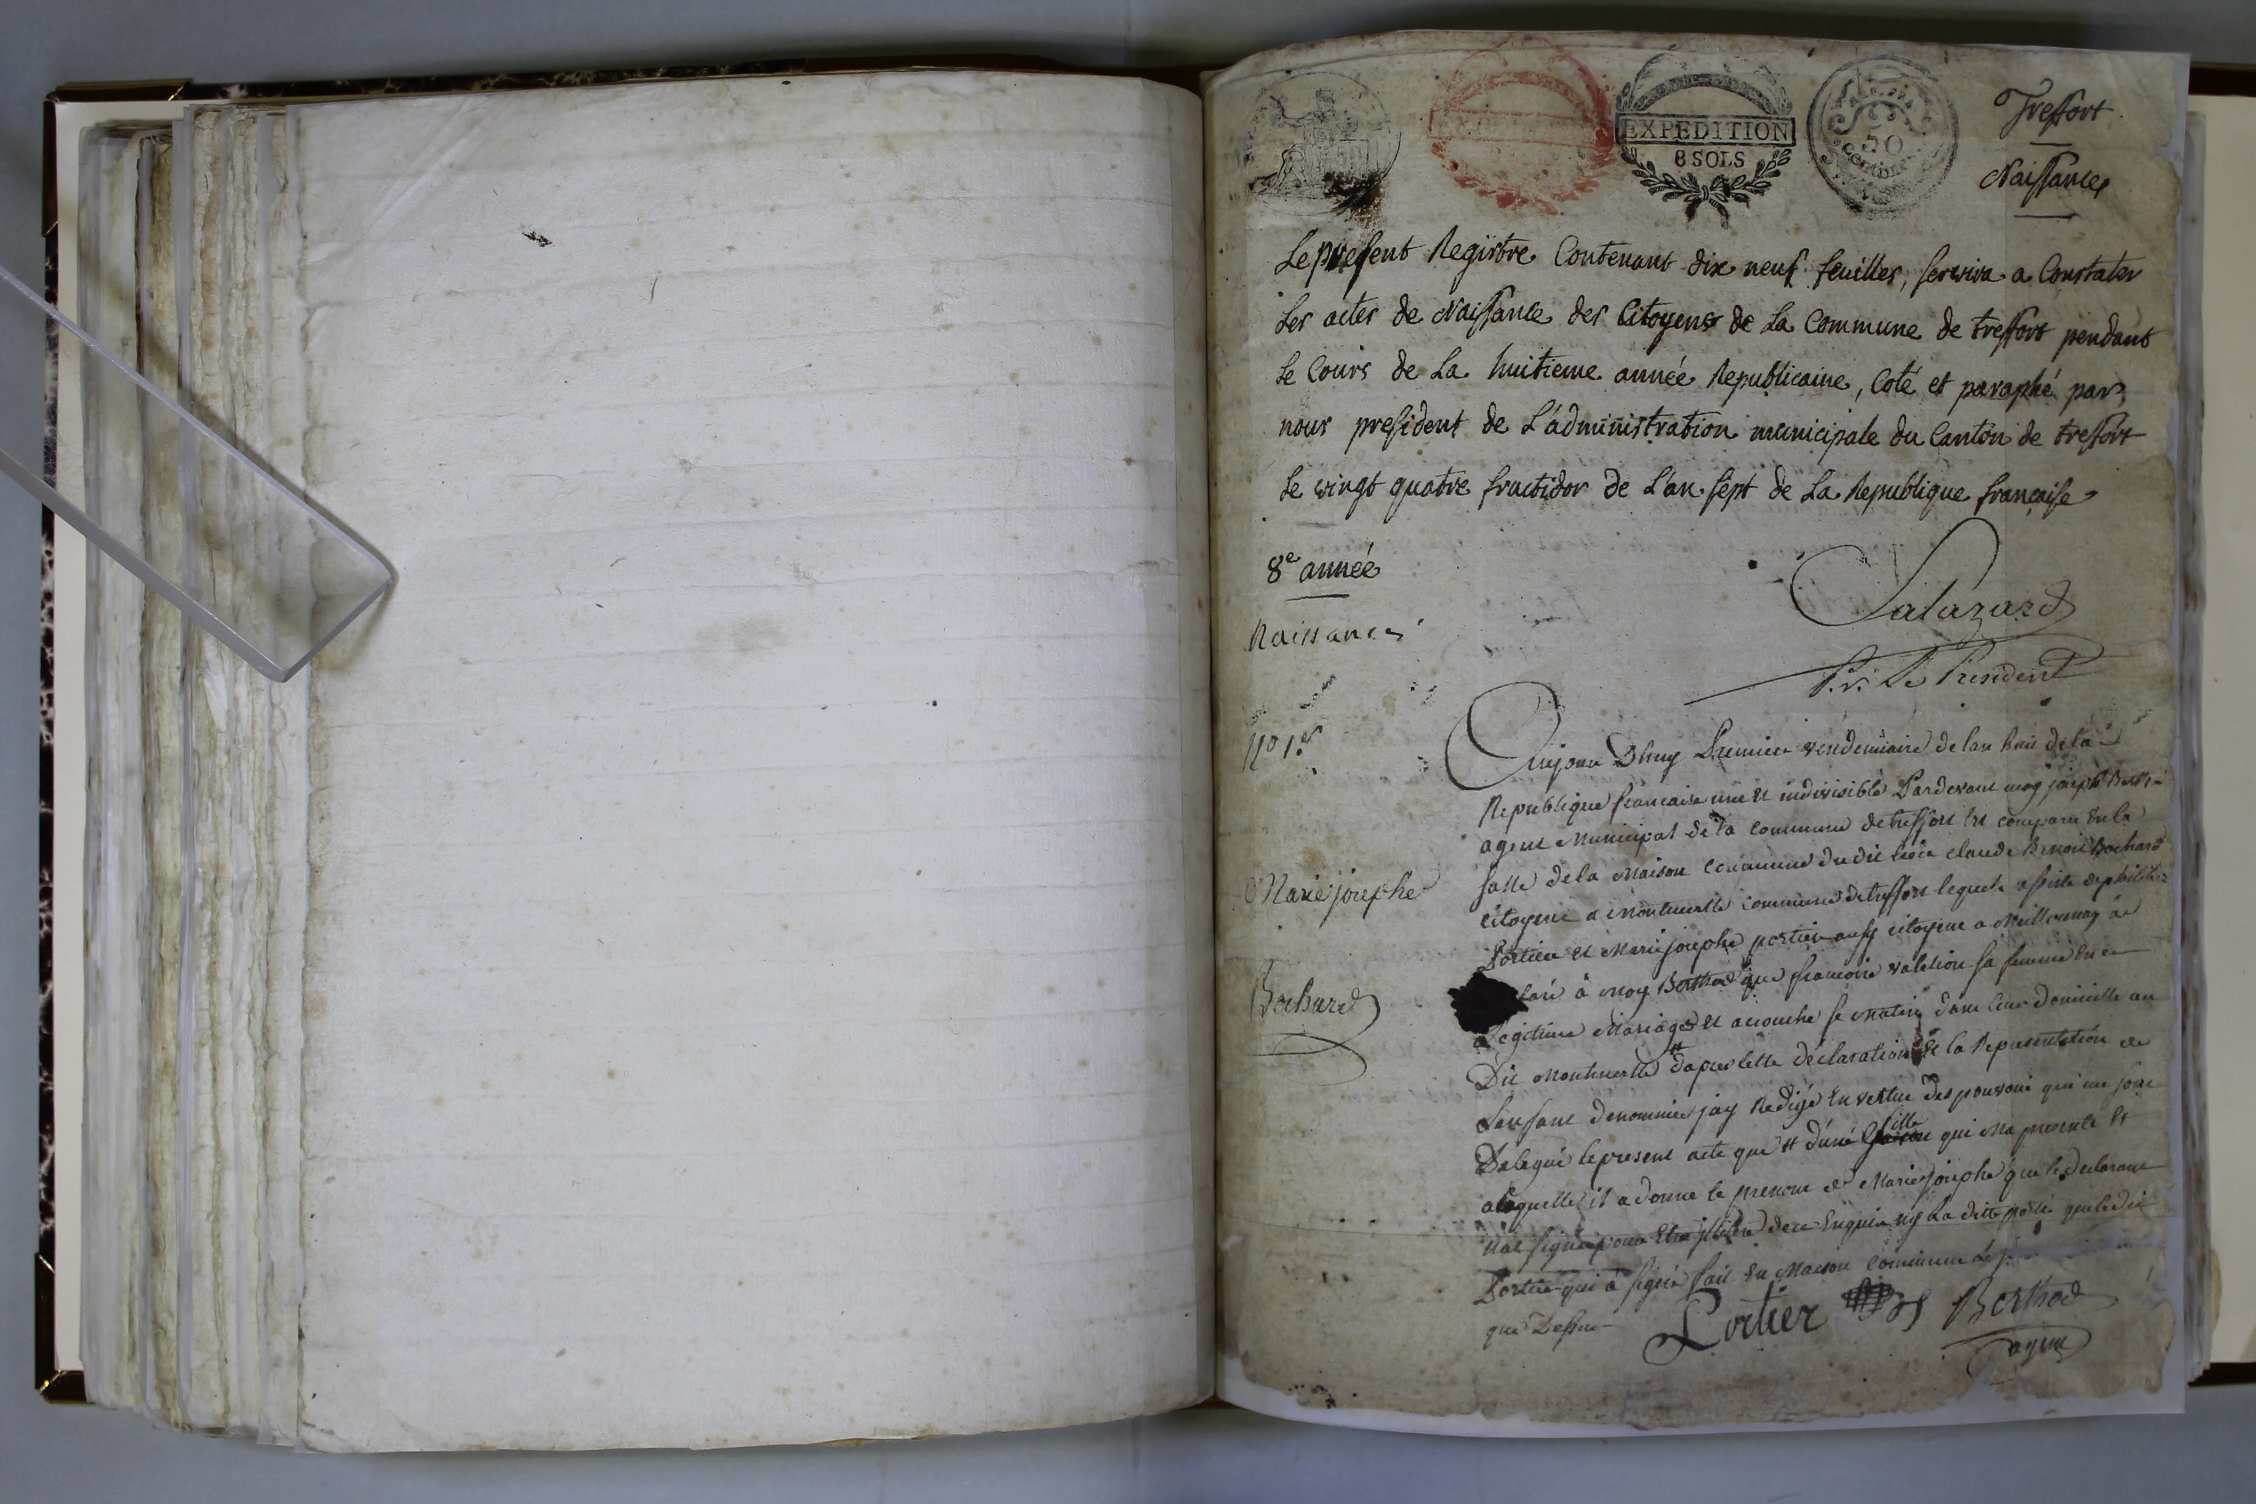 EXPEDITION
8 SOLS
50
Centimes
Treffort
Naissances
Le present Registre Contenant dix neuf feuilles, servira a Constater
Les actes de Naissance des Citoyens de La Commune de treffort pendant
Le Cours de La huitieme année Republicaine, Coté et paraphé par
nous president de L'administration municipale du Canton de treffort
Le vingt quatre fructidor de L'an sept de La Republique française
8e année
Salazard
Naissances
P.r. Le President
No 1er
Aujourdhuy Premier vendemiaire de lan huit de la
Republique francaise une et indivisible Pardevant moy joseph
agent Municipal de la commune de treffort est comparu en la
salle de la Maison commune du dit lieu claude Benoit Bochard
Marie josephe
citoyen a Montmerle commune de treffort lequel assisté de philibert
Portier et Marie josephe portier aussy citoyens a
à moy Berthod que francoise sa femme en
Bochard
Legitime Mariage est accouché se matin dans leur domicille au
Dit Montmerle d'apres cette declaration et la Representation de
Lenfant denommé jay Redigé en vertu des pouvoirs qui me sont
Delegué le present acte que d'une fille qui ma presenté et
a laquelle il a donné le prenom de Marie josephe que les declarants
nont signé pour de ce Enquis ny la ditte que le dit
Portier qui a signé fait en Maison commune Le
que Dessus
Portier Berthod
agent